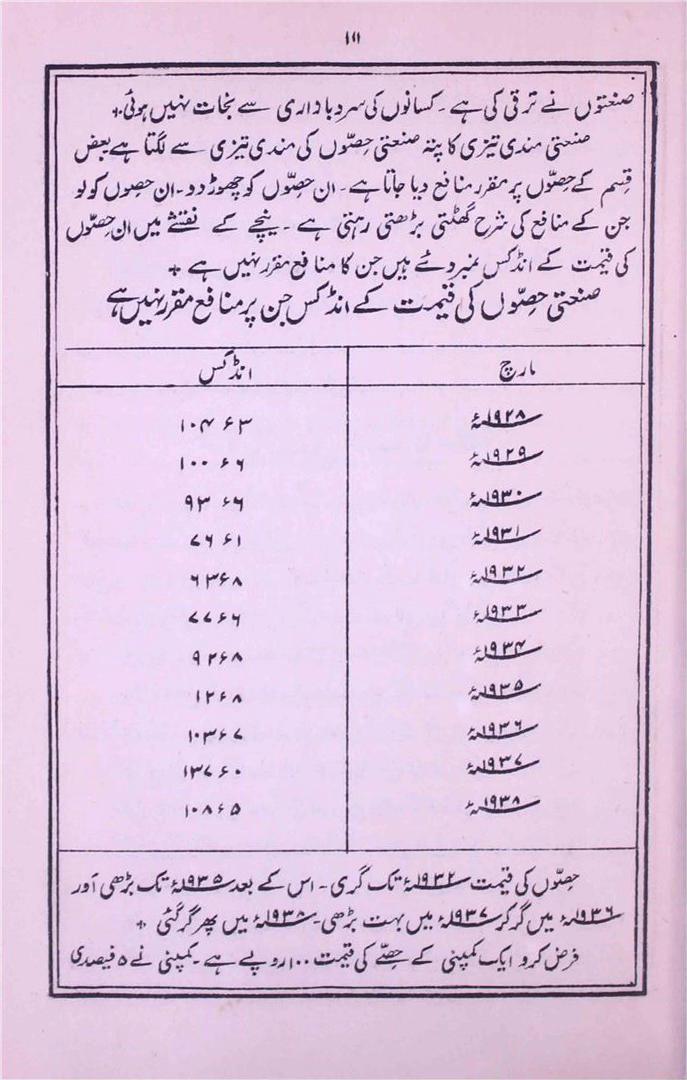 ۱۱۱
صنعتوں نے ترقی کی ہے۔ کسانوں کی سرد بازاری سے نجات نہیں ہوئی ٭
صنعتی مندی تیزی کا پتہ صنعتی حصّوں کی مندی تیزی سے لگتا ہے بعض
قسم کے حصّوں پر مقرر منافع دیا جاتا ہے۔ ان حصّوں کو چھوڑ دو۔ ان حصوں کو لو
جن کے منافع کی شرح گھٹتی بڑھتی رہتی ہے۔ نیچے کے نقشے میں ان حصّوں
کی قیمت کے انڈکس نمبر دئے ہیں جن کا منافع مقرر نہیں ہے ٭
صنعتی حصّوں کی قیمت کے انڈکس جن پر منافع مقرر نہیں ہے
مارچ انڈکس
۱۹۲۸ء ۱۰۴ء۳
۱۹۲۹ء ۱۰۰ء۶
۱۹۳۰ء ۹۳ء۶
۱۹۳۱ء ۷۶ء۱
۱۹۳۲ء ۶۳ء۸
۱۹۳۳ء ۷۷ء۶
۱۹۳۴ء ۹۲ء۸
۱۹۳۵ء ۱۲ء۸
۱۹۳۶ء ۱۰۳ء۷
۱۹۳۷ء ۱۳۷ء۰
۱۹۳۸ء ۱۰۸ء۵
حصّوں کی قیمت ۱۹۳۲ء تک گری۔ اس کے بعد ۱۹۳۵ء تک بڑھی اور
۱۹۳۶ء میں گر کر ۱۹۳۷ء میں بہت بڑھی۔ ۱۹۳۸ء میں پھر گر گئی ٭
فرض کرو ایک کمپنی کے حصّے کی قیمت ۱۰۰ روپے ہے۔ کمپنی نے ۵ فیصدی